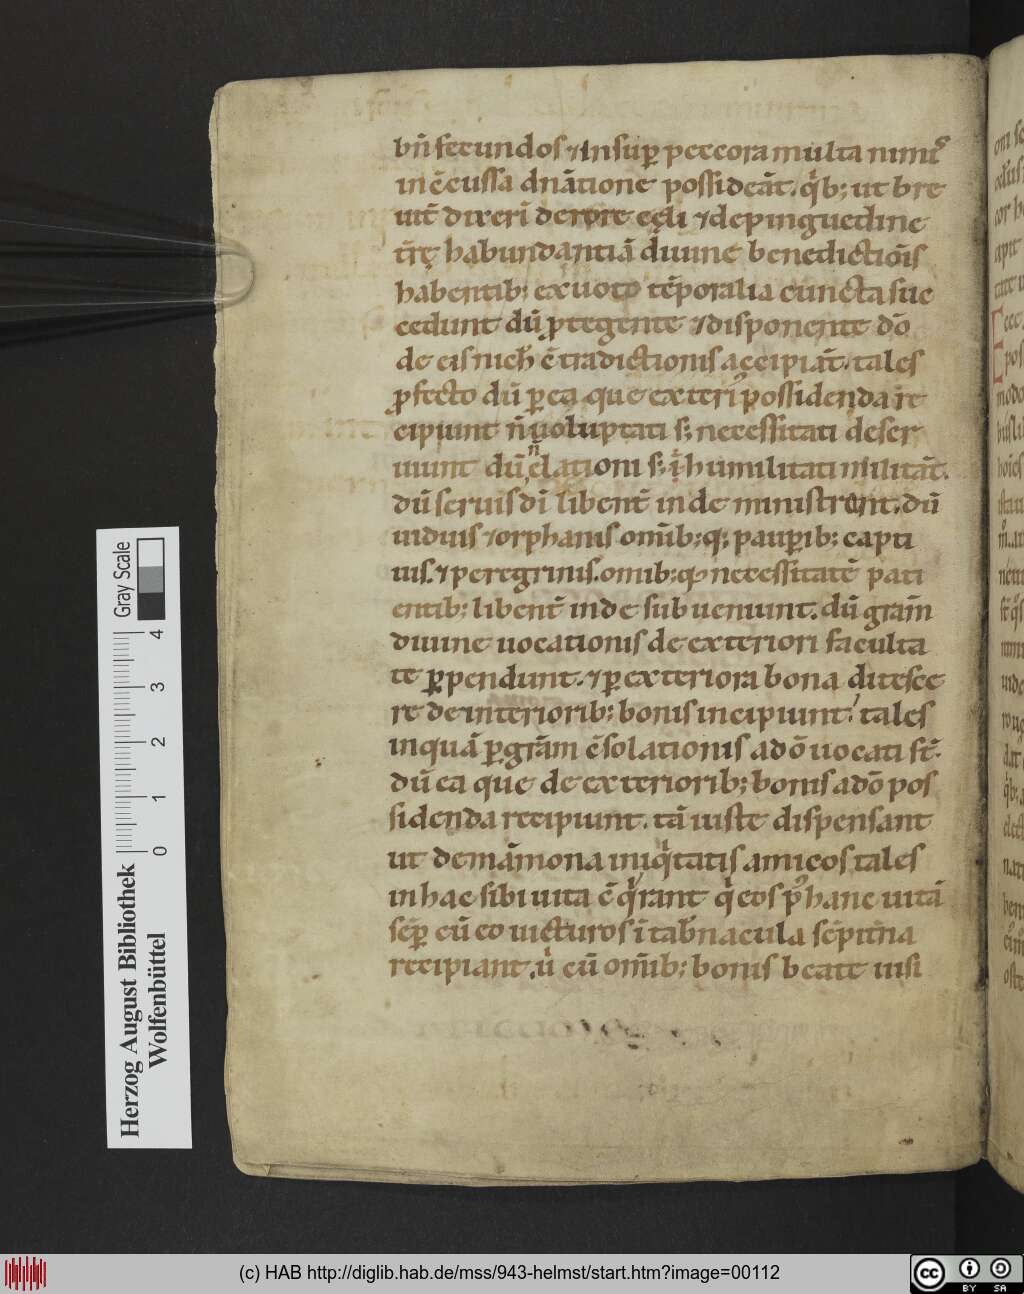 bn̄ fecundos ⁊ Insuꝑ peccora multa nimiꝰ
in c̄cussa dnātione possideāt. qͥb; ut bre
uit̄ dixeri de rore cęli ⁊ de pinguedine
tr̄ę habundantiā diuine benedictiōis
habentib; ex uoto tēporalia cuncta suc
cedunt dū ꝓtegente ⁊ disponente dō
de eis nich̄ c̄tradictionis accipiāt. tales
ꝓfecto dū ꝑ ea que exteriꝰ possidenda re
cipiunt n̄ uoluptati s; necessitati deser
uiunt dū n̄ elationi s; humilitati militāt.
dū seruis dī libent̄ inde ministrent. dū
uiduis ⁊ orphanis omīb; q; pauꝑib; capti
uis. ⁊ peregrinis. omib; q; necessitatē pati
entib; libent̄ inde subueniunt. dū gram̄
diuine uocationis de exteriori faculta
te ꝑpendunt. ⁊ ꝑ exteriora bona ditesce
re de interiorib; bonis incipiunt. tales
inquā ꝑ grām c̄solationis a dō uocati st̄.
dū ea que de exteriorib; bonis a dō pos
sidenda recipiunt. tā iuste dispensant
ut de māmona iniqͥtatis amicos tales
in hac sibi uita c̄qͥrant qͥ eos pꝰ hanc uitā
sēꝑ cū eo uicturos ī tab̄nacula sēpit̄na
recipiant. uͥ cū omīb; bonis beate uisi
Gray Scale
0 1 2 3 4
Herzog August Bibliothek
Wolfenbüttel
(c) HAB http://diglib.hab.de/mss/943-helmst/start.htm?image=00112
cc BY SA